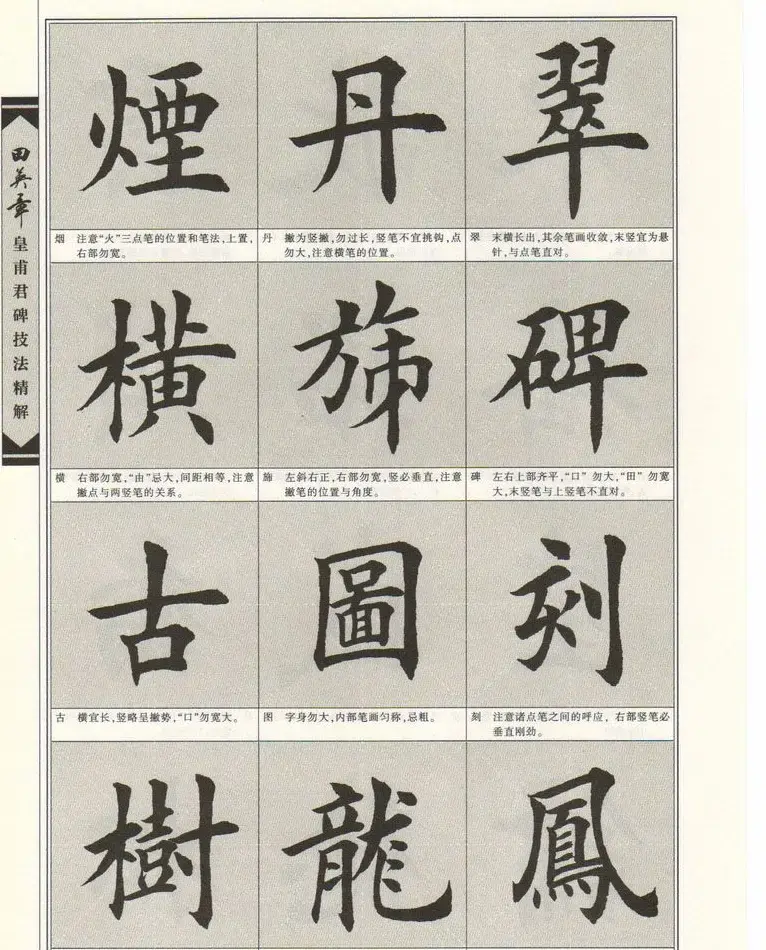 田英章
皇甫君碑技法精解
煙 丹 翠
烟 注意“火”三点笔的位置和笔法,上置,
右部勿宽。
丹 撇为竖撇,勿过长,竖笔不宜挑钩,点
勿大,注意横笔的位置。
翠 末横长出,其余笔画收敛,末竖宜为悬
针,与点笔直对。
横 旆 碑
横 右部勿宽,“由”忌大,间距相等,注意
撇点与两竖笔的关系。
左斜右正,右部勿宽,竖必垂直,注意
撇笔的位置与角度。
碑 左右上部齐平,“口”勿大,“田”勿宽
大,末竖笔与上竖笔不直对。
古 圖 刻
古 横宜长,竖略呈撇势,“口”勿宽大。
图 字身勿大,内部笔画匀称,忌粗。
刻 注意诸点笔之间的呼应,右部竖笔必
垂直刚劲。
樹 龍 鳳